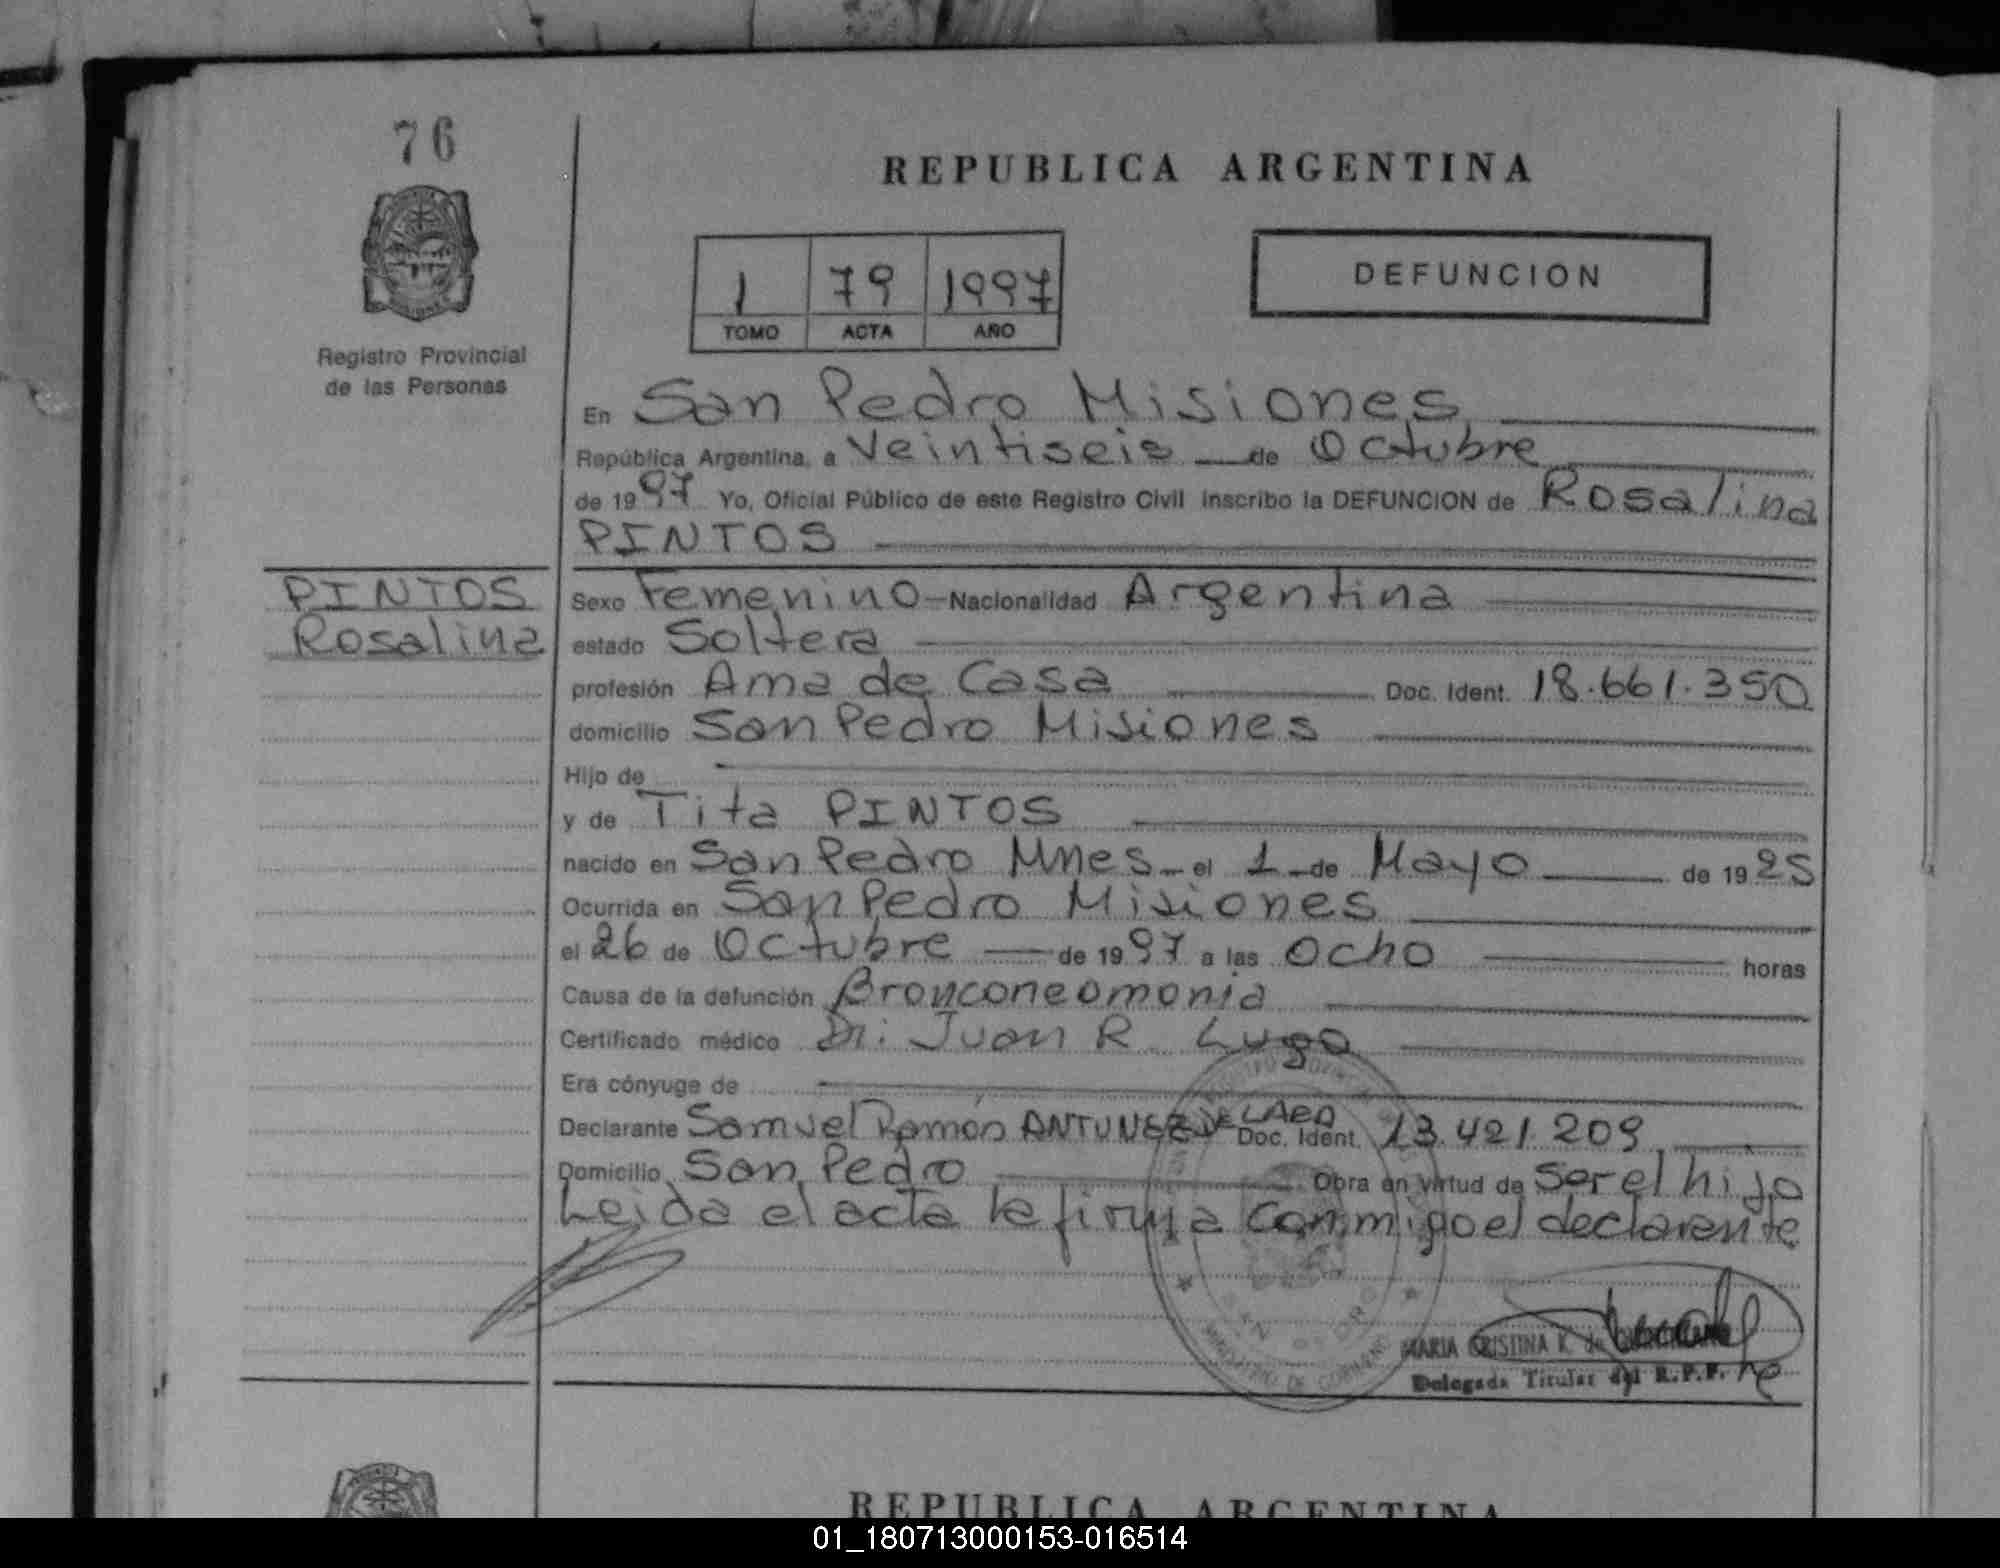 76
REPUBLICA ARGENTINA
1 79 1997
TOMO ACTA AÑO
DEFUNCION
Registro Provincial
de las Personas
En San Pedro Misiones
República Argentina, a Veintiseis de Octubre
de 1997 Yo, Oficial Público de este Registro Civil inscribo la DEFUNCION de Rosalina
PINTOS
PINTOS
Rosalina
Sexo Femenino Nacionalidad Argentina
estado Soltera
profesión Ama de Casa Doc. Ident. 18.661.350
domicilio San Pedro Misiones
Hijo de
y de Tita PINTOS
nacido en San Pedro Mnes el 1 de Mayo de 1925
Ocurrida en San Pedro Misiones
el 26 de Octubre de 1997 a las Ocho horas
Causa de la defunción Bronconeomonia
Certificado médico Dr. Juan R. Lugo
Era cónyuge de
Declarante Samuel Ramón ANTUNEZ Doc. Ident. 13.421.209
Domicilio San Pedro Obra en virtud de Ser el hijo
Leida el acta la firma conmigo el declarante
SAN PEDRO
MINISTERIO DE GOBIERNO
MARIA CRISTINA K. de
Delegada Titular del R.P.P.
REPUBLICA ARGENTINA
01_180713000153-016514